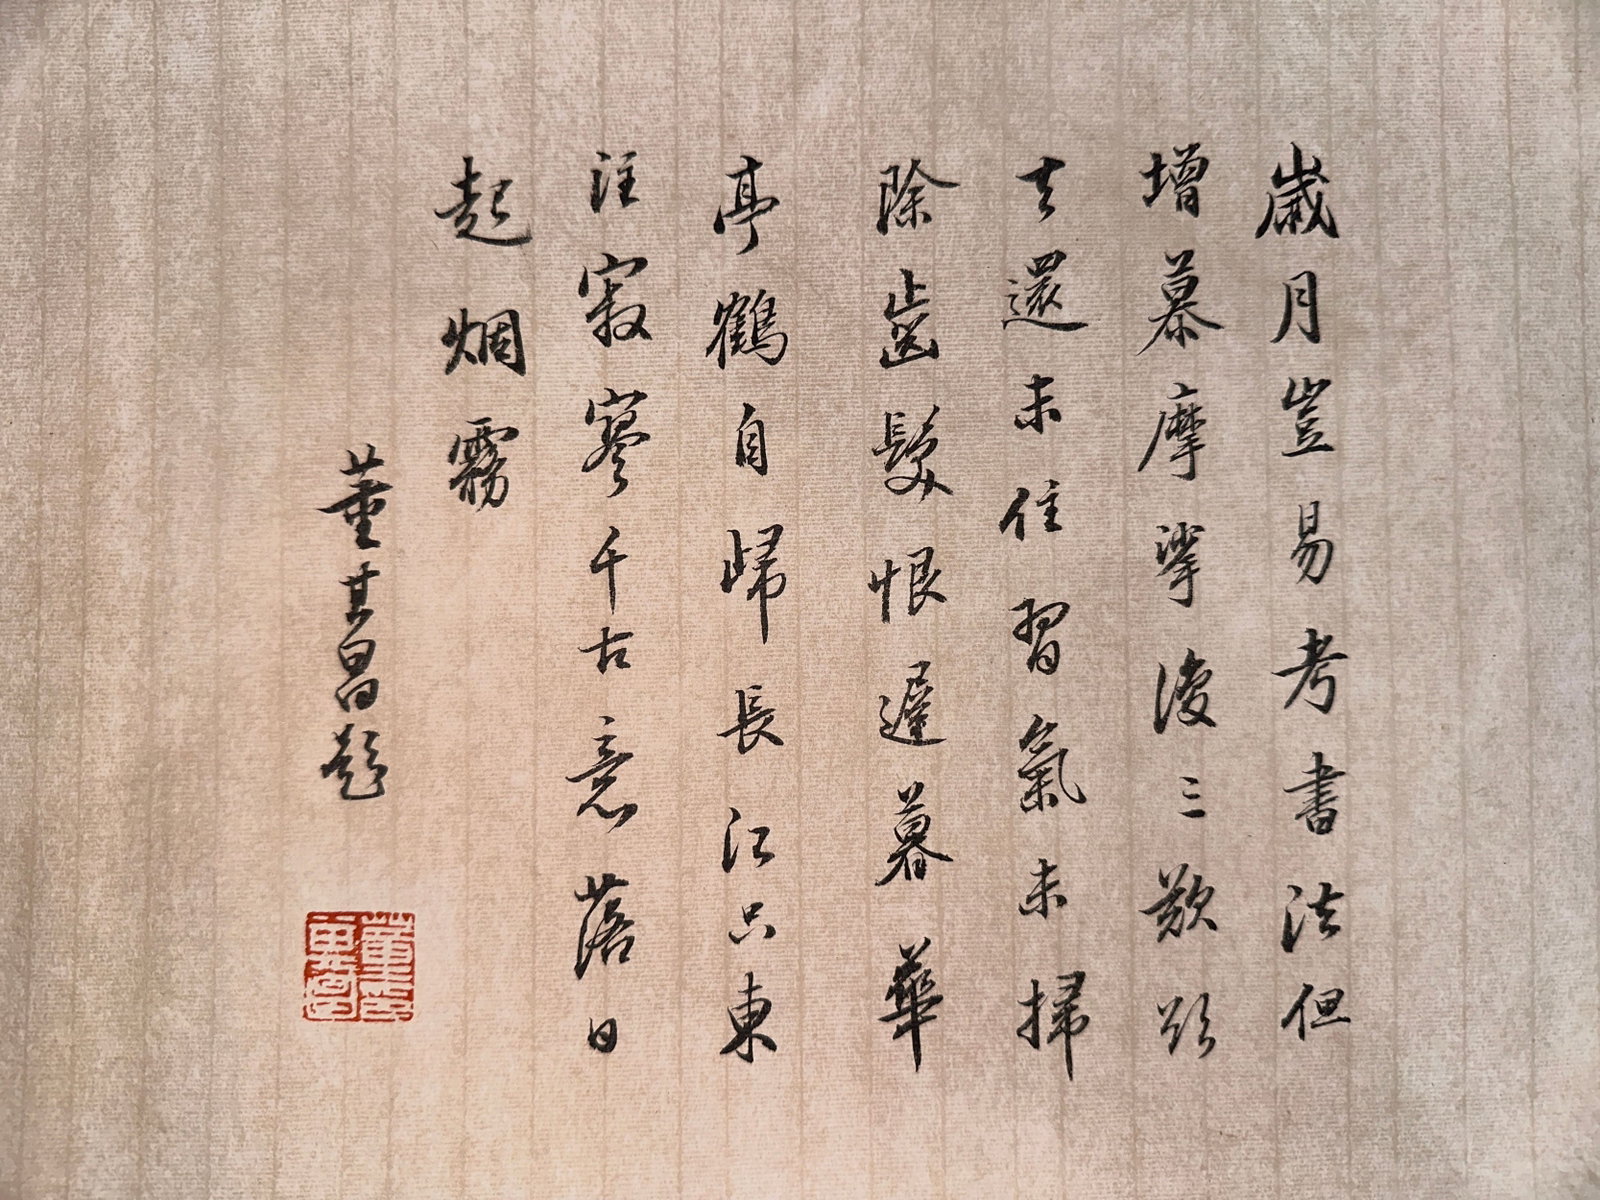 歲月豈易考書法但
增慕摩挲復三歎欲
去還未住習氣未掃
除齒髮恨遲暮華
亭鶴自歸長江只東
注寂寥千古意落日
起烟霧
董其昌題